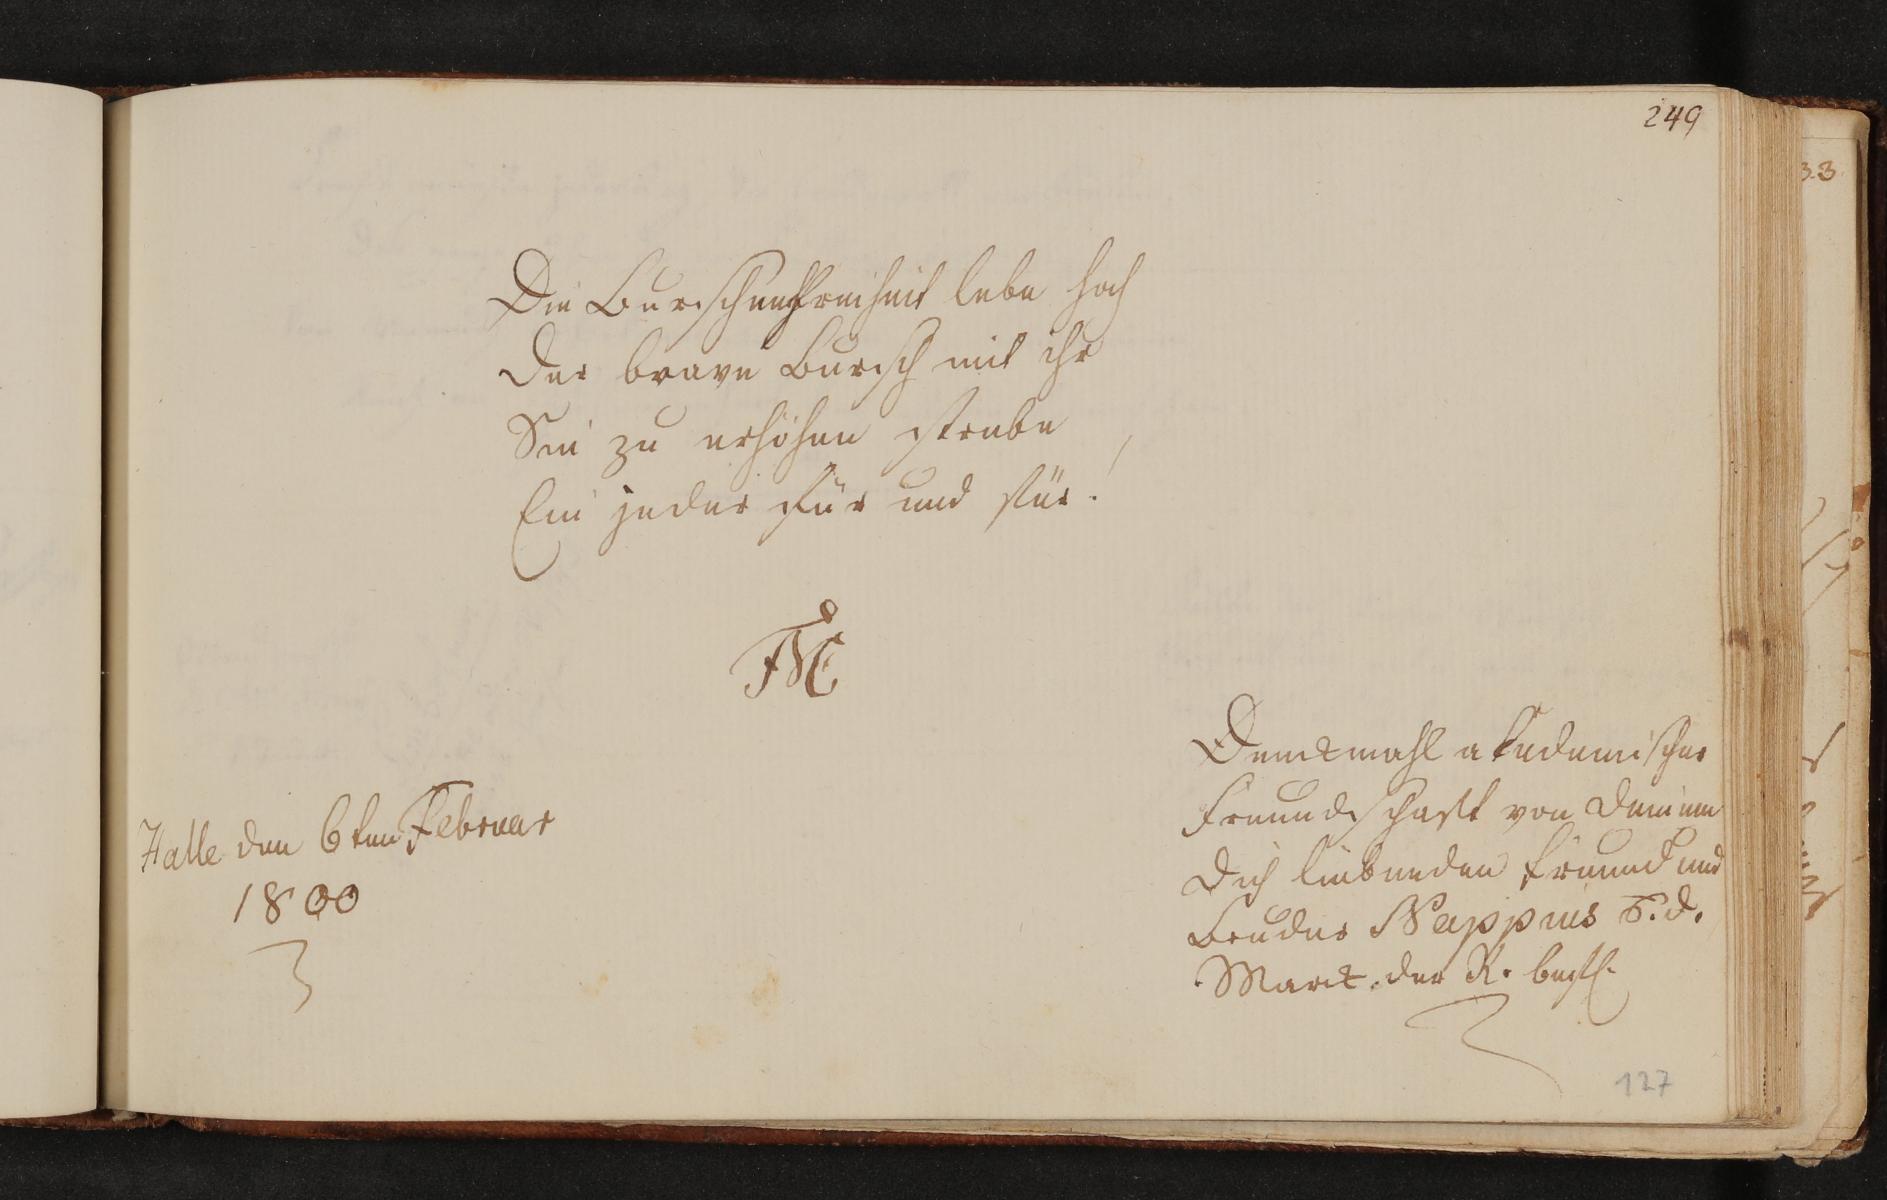 249
Die Burschenfreiheit lebe hoch
Der brave Bursch mit ihr
Sei zu erhöhen strebe
Ein jeder für und für!
Halle den 6ten Februar
1800
Denckmahl akademischer
Freundschaft von Deinem
Dich liebenden Freund und
Bruder Nappius
Marck. der R. befl.
127
33